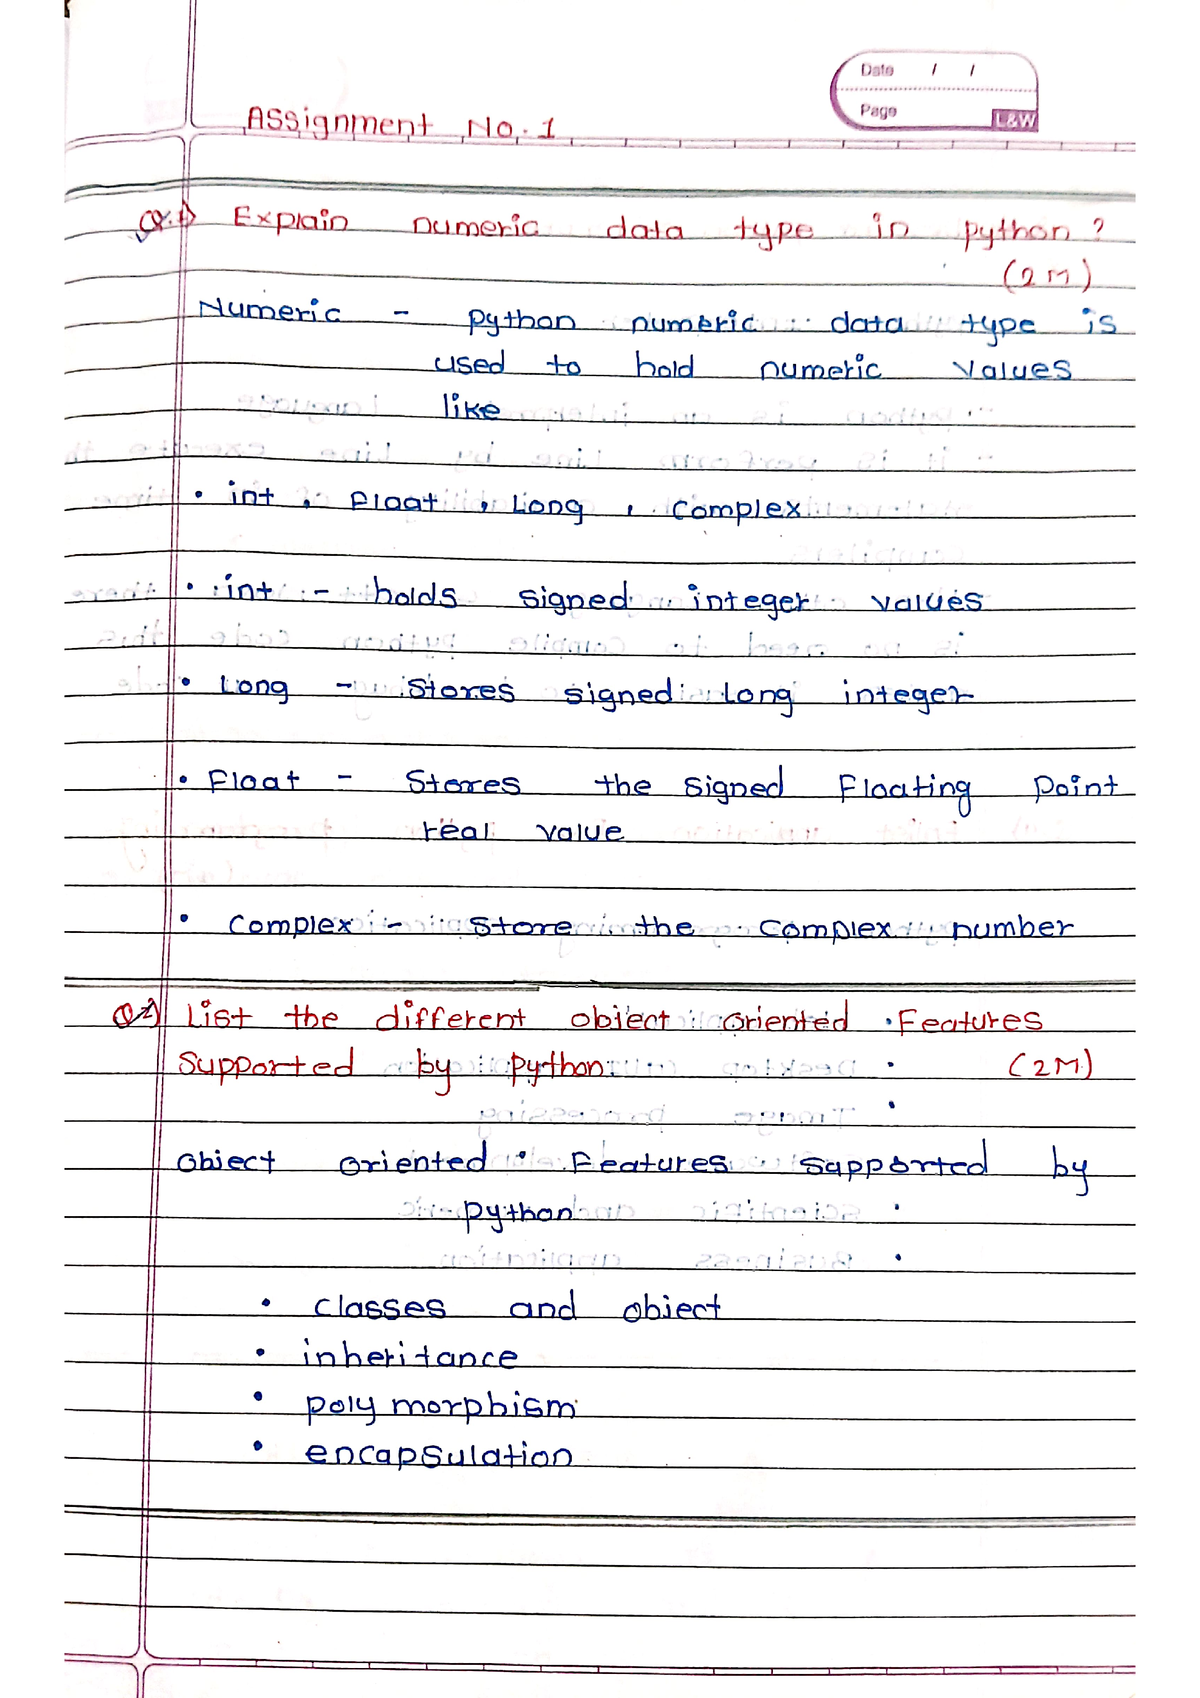 Date / /
Page
L&W
Assignment No. 1
Q.1) Explain numeric data type in python ?
(2 M)
Numeric - python numeric data type is
used to hold numeric values
like
• int , Float , Long , Complex
• int - holds signed integer values
• Long - Stores signed Long integer
• Float - Stores the signed Floating point
real value
• Complex - Store the complex number
Q2) List the different object oriented Features
Supported by python. (2M)
Object oriented Features supported by
python
• classes and object
• inheritance
• poly morphism
• encapsulation